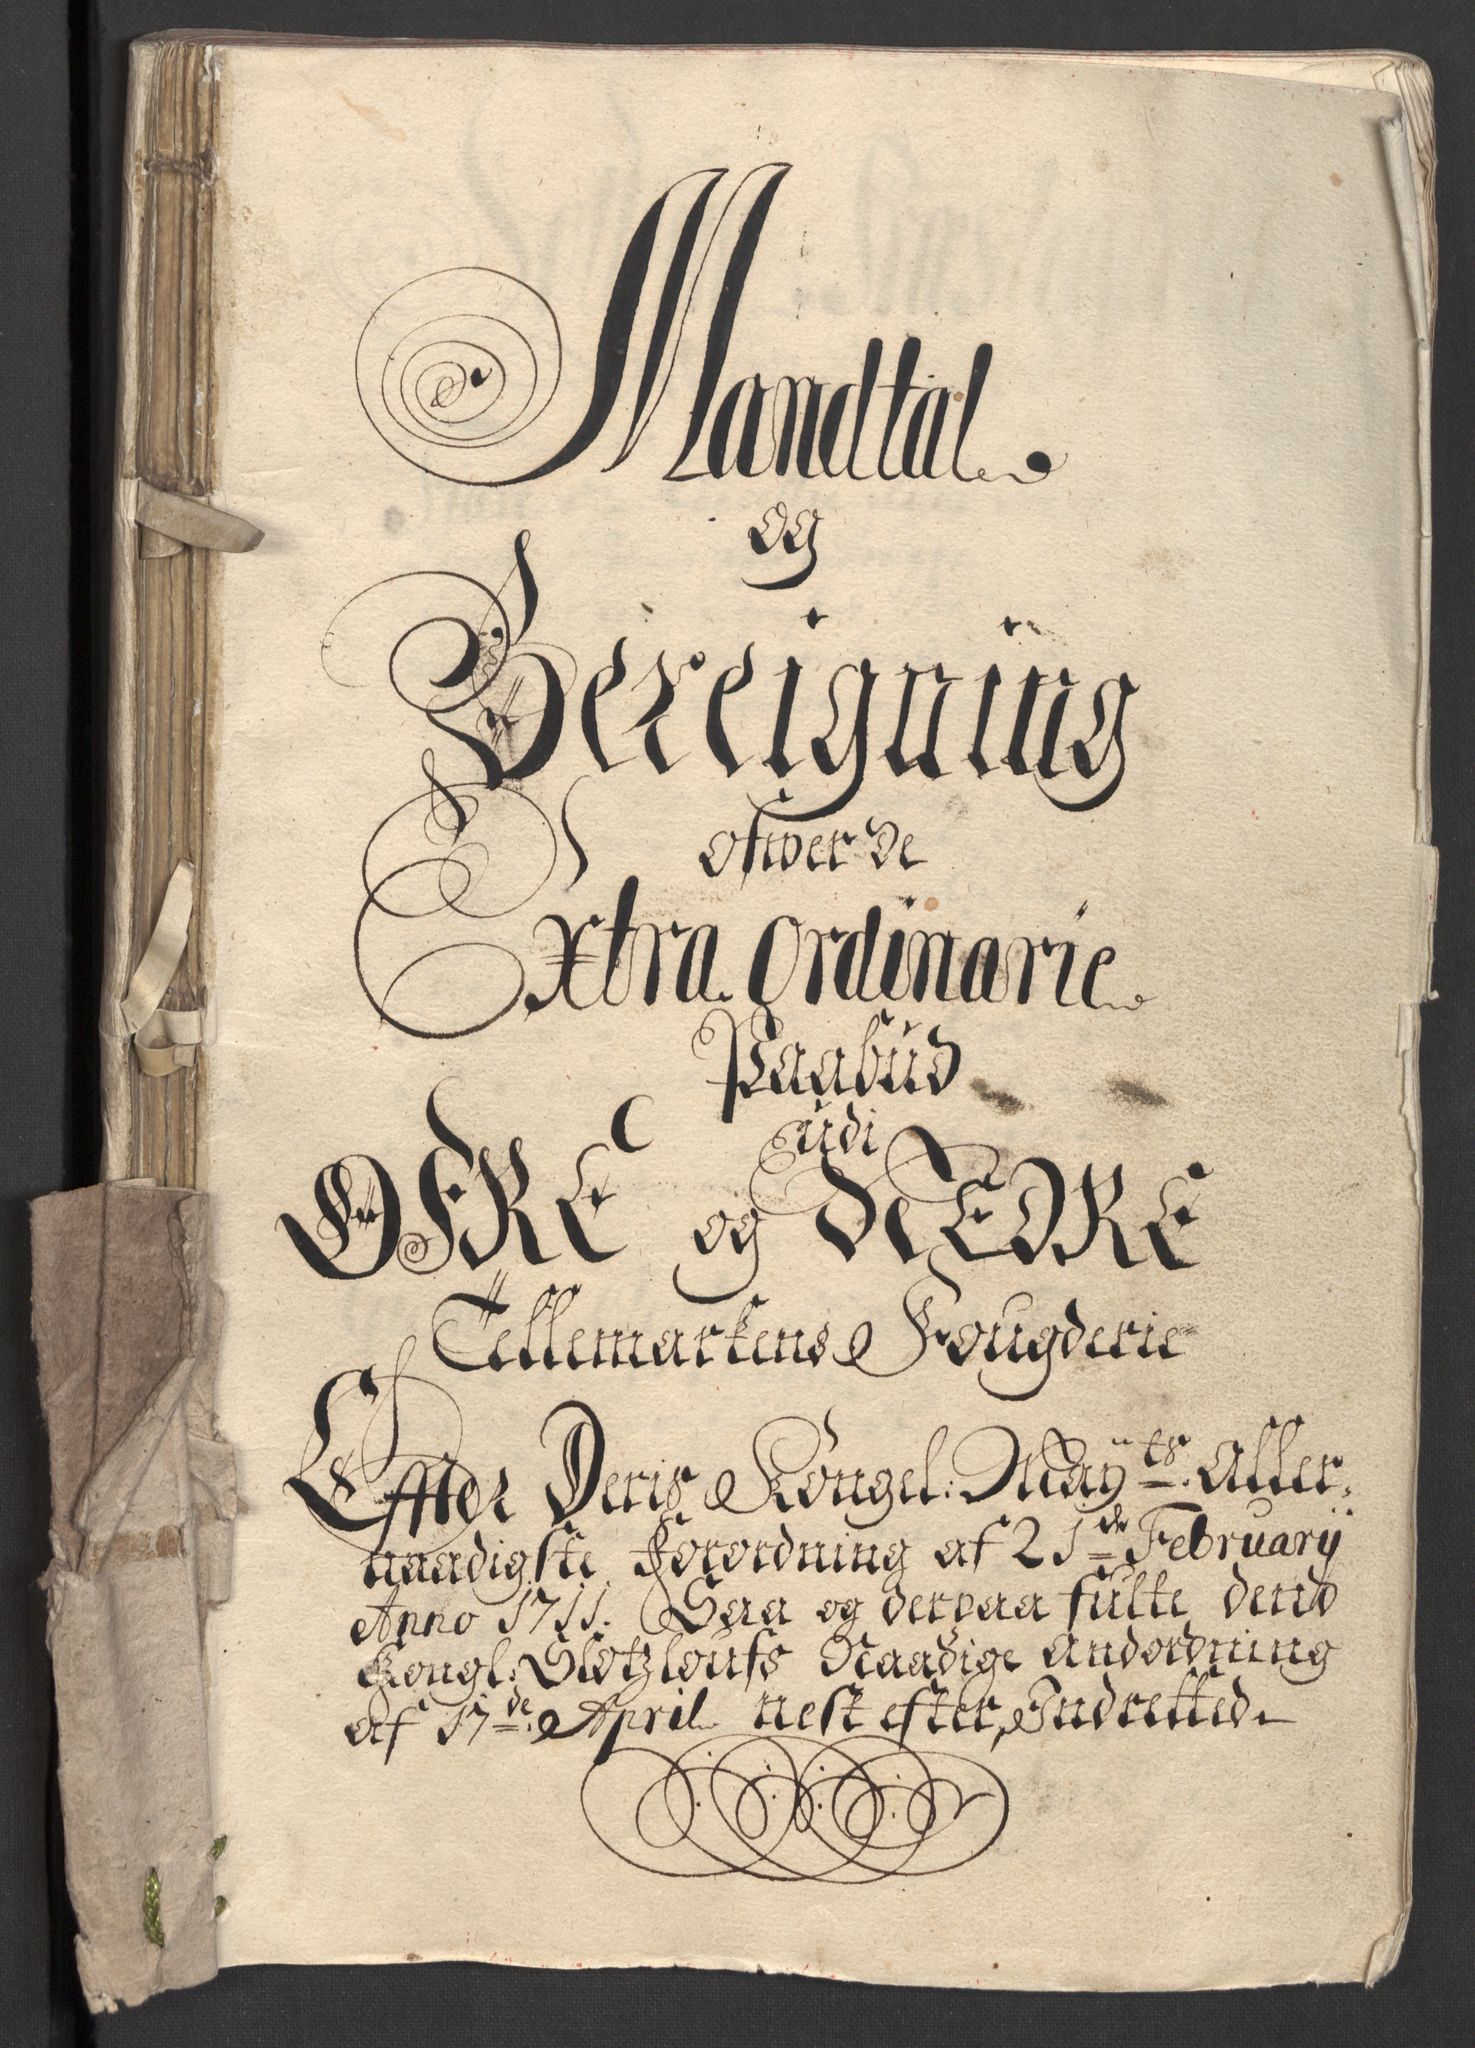 Mandtal
og
Bereigning
ofwer de
Extra Ordinarie
Paabüd
üdi
ØFRE og NEDRE
Tellemarkens Fougderie
Effter Deris Kongel: Mayts. Aller,
naadigste Forordning af 21de Februarÿ
Anno 1711. Saa og derpaa fülte dend
Kongl: Slotzloufs Naadige Andordning
af 17de April nest efter, Indretted